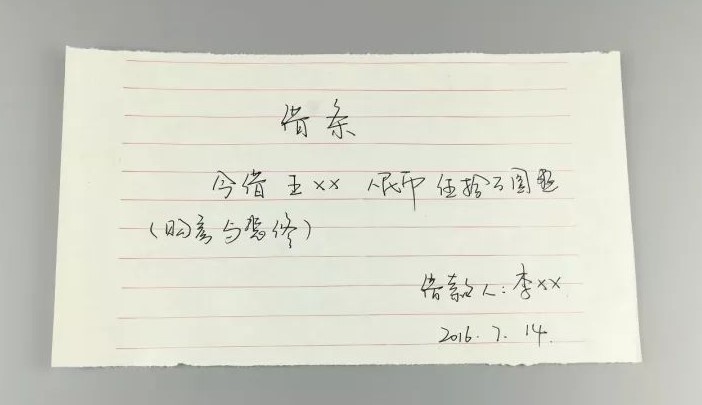 借条
今借 王xx 人民币 伍拾万圆整
(
借款人：李xx
2016.7.14.